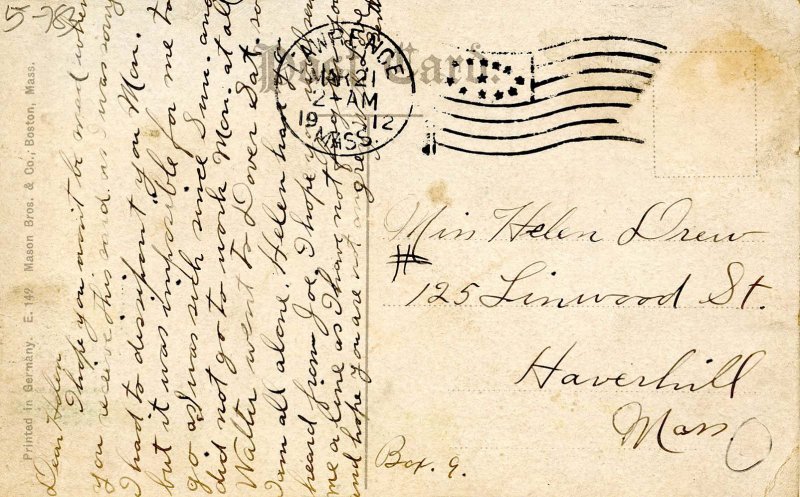 5-
Post Card.
LAWRENCE
MAR 21
2-AM
1912
MASS.
Miss Helen Drew
#
125 Linwood St.
Haverhill
Mass
Box. 9.
Printed in Germany. E. 142 Mason Bros. & Co., Boston, Mass.
Dear Helen
I hope you won't be mad when
you receive this card. as I was sorry
I had to dissipoint you Mon.
but it was impossible for me to
go as I was sick since Sun. and
did not go to work Mon. at all
Walter went to Dover Sat. so
I am all alone. Helen have you
heard from Joe. I hope you
me a line as I have not
and hope you are not angry